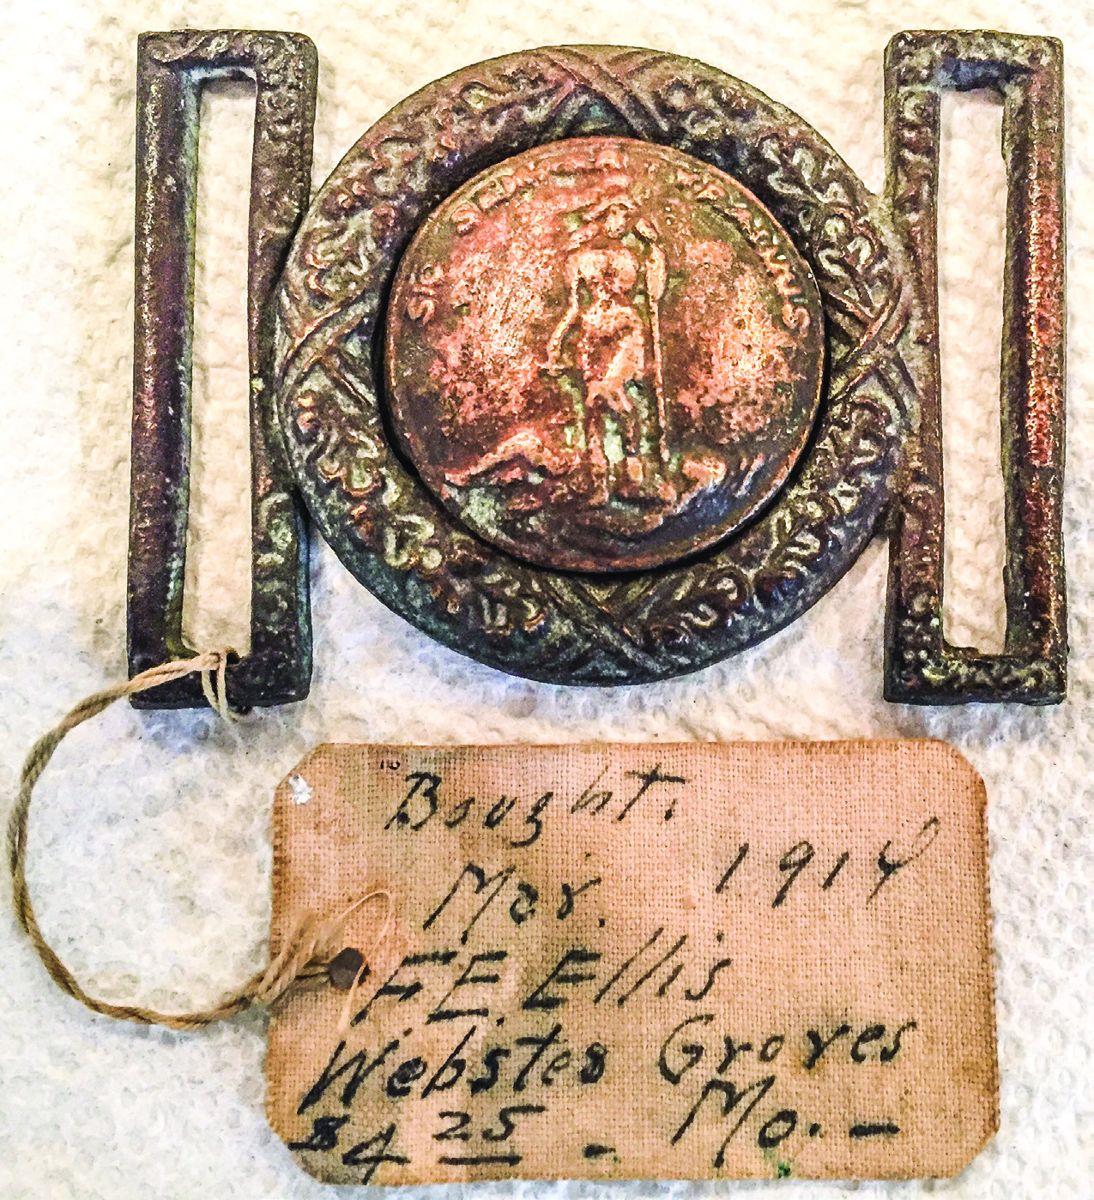 SIC SEMPER TYRANNIS
Bought.
Mar. 1914
F.E. Ellis
Webster Groves
$4 25 - Mo. -